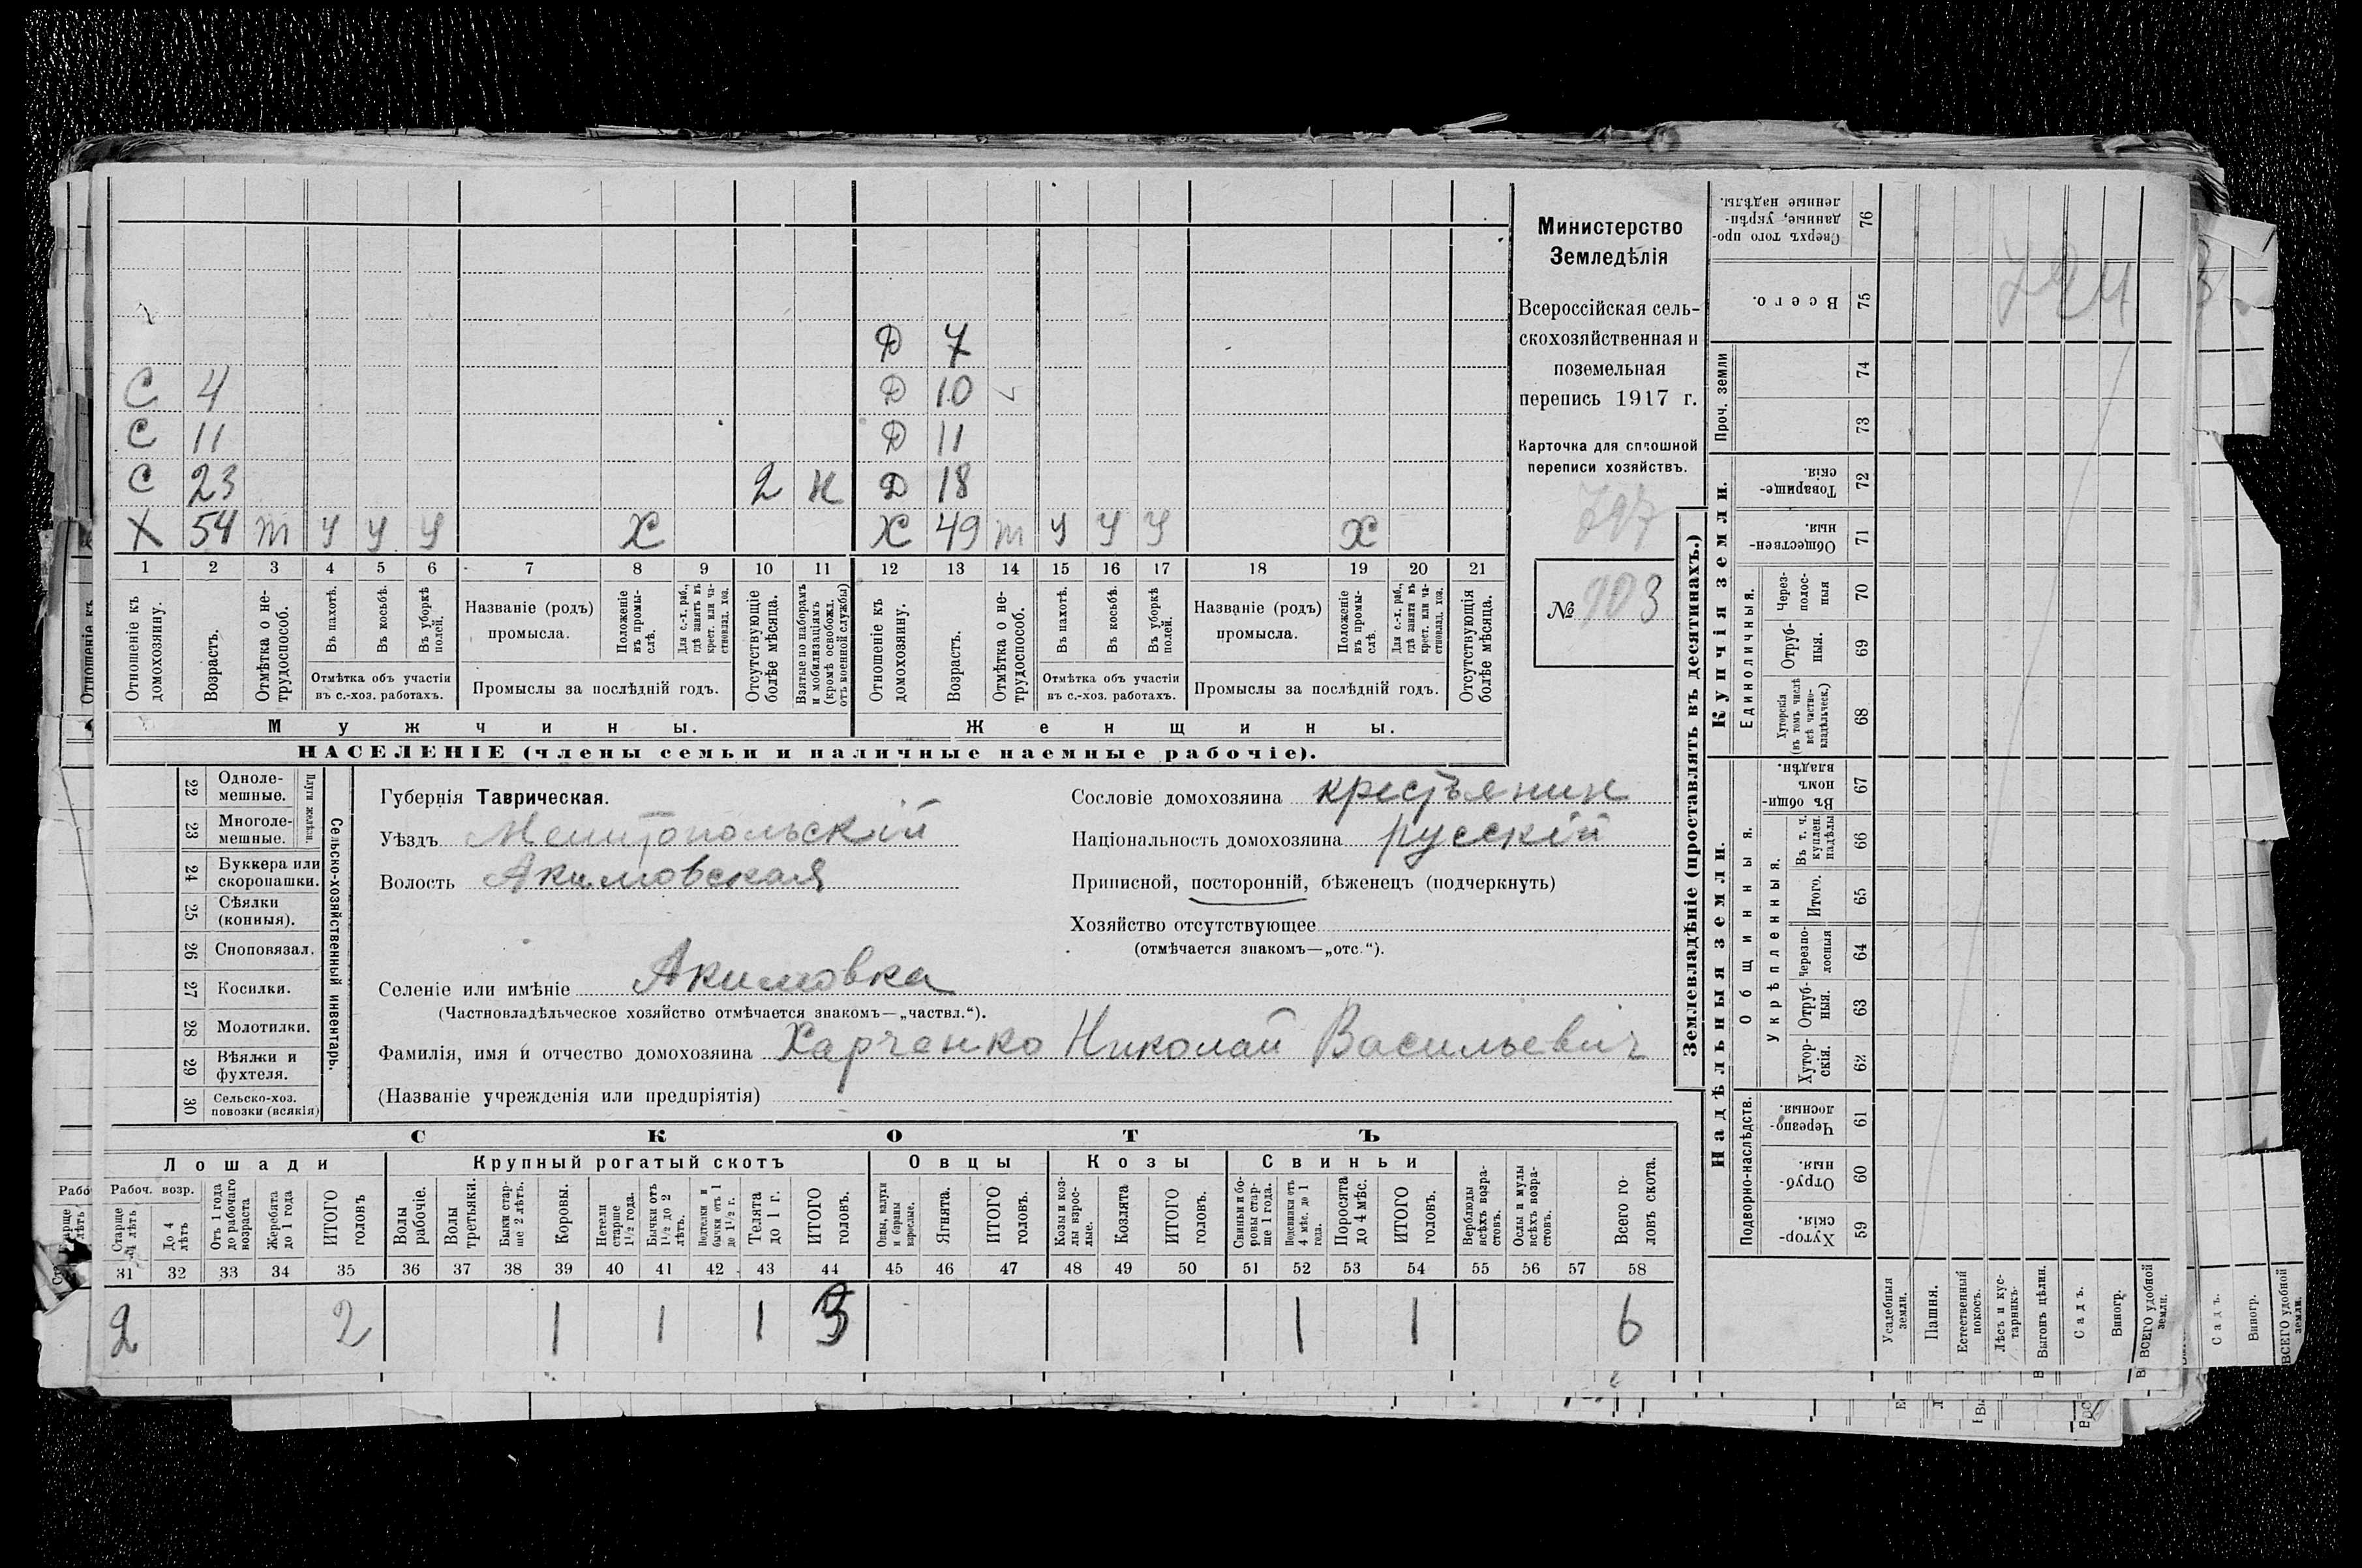 Д 7
С 4 Д 10
С 11 Д 11
С 23 2 н Д 18
Х 54 т у у у Х Х 49 т у у у Х
1 2 3 4 5 6 7 8 9 10 11 12 13 14 15 16 17 18 19 20 21
Отношеніе къ домохозяину.
Возрастъ.
Отмѣтка о нетрудоспособ.
Въ пахотѣ.
Въ косьбѣ.
Въ уборкѣ полей.
Отмѣтка объ участіи
въ с.-хоз. работахъ.
Названіе (родъ)
промысла.
Положеніе въ промыслѣ.
Для с.-х. раб., гдѣ занятъ въ крест. или частновлад. хоз.
Промыслы за послѣдній годъ.
Отсутствующіе болѣе мѣсяца.
Взятые по наборамъ и мобилизаціямъ (кромѣ освобожд. отъ военной службы)
Отношеніе къ домохозяину.
Возрастъ.
Отмѣтка о нетрудоспособ.
Въ пахотѣ.
Въ косьбѣ.
Въ уборкѣ полей.
Отмѣтка объ участіи
въ с.-хоз. работахъ.
Названіе (родъ)
промысла.
Положеніе въ промыслѣ.
Для с.-х. раб., гдѣ занята въ крест. или частновлад. хоз.
Промыслы за послѣдній годъ.
Отсутствующія болѣе мѣсяца.
Мужчины. Женщины.
НАСЕЛЕНІЕ (члены семьи и наличные наемные рабочіе).
Министерство
Земледѣлія
Всероссійская сель-
скохозяйственная и
поземельная
перепись 1917 г.
Карточка для сплошной
переписи хозяйствъ.
797
№ 903
22 Одноле-
мешные.
23 Многоле-
мешные.
Плуги желѣзн.
24 Буккера или
скоропашки.
25 Сѣялки
(конныя).
26 Сноповязал.
27 Косилки.
28 Молотилки.
29 Вѣялки и
фухтеля.
30 Сельско-хоз.
повозки (всякія)
Сельско-хозяйственный инвентарь.
Губернія Таврическая.
Уѣздъ Мелитопольскій
Волость Акимовская
Сословіе домохозяина крестьянин
Національность домохозяина русскій
Приписной, посторонній, бѣженецъ (подчеркнуть)
Хозяйство отсутствующее
(отмѣчается знакомъ—„отс.“).
Селеніе или имѣніе Акимовка
(Частновладѣльческое хозяйство отмѣчается знакомъ—„частвл.“).
Фамилія, имя и отчество домохозяина Харченко Николай Васильевич
(Названіе учрежденія или предпріятія)
СКОТЪ
Лошади Крупный рогатый скотъ Овцы Козы Свиньи
Рабоч. возр.
Старше 4 лѣтъ
До 4 лѣтъ
Отъ 1 года до рабочаго возраста
Жеребята до 1 года
ИТОГО головъ
Волы рабочіе.
Волы третьяки.
Быки старше 2 лѣтъ.
Коровы.
Нетели старше 1½ года.
Бычки отъ 1½ до 2 лѣтъ.
Подтелки и бычки отъ 1 до 1½ г.
Телята до 1 г.
ИТОГО головъ.
Овцы, валухи и бараны взрослые.
Ягнята.
ИТОГО головъ.
Козы и козлы взрослые.
Козлята
ИТОГО головъ.
Свиньи и боровы старше 1 года.
Подсвинки отъ 4 мѣс. до 1 года.
Поросята до 4 мѣс.
ИТОГО головъ.
Верблюды всѣхъ возрастовъ.
Ослы и мулы всѣхъ возрастовъ.
Всего головъ скота.
31 32 33 34 35 36 37 38 39 40 41 42 43 44 45 46 47 48 49 50 51 52 53 54 55 56 57 58
2 2 1 1 1 3 1 1 6
Землевладѣніе (проставлять въ десятинахъ.)
Надѣльныя земли. Купчія земли. Проч. земли
Подворно-наслѣдств.
Общинныя.
Укрѣпленныя.
Единоличныя.
76 Сверхъ того проданные, укрѣпленные надѣлы.
75 Всего.
74
73
72 Товарищескія.
71 Общественныя.
70 Черезполосныя
69 Отрубныя.
68 Хуторскія (въ томъ числѣ всѣ частновладѣльческ.)
67 Въ общинномъ владѣн.
66 Въ т. ч. куплен. надѣлы
65 Итого.
64 Черезполосныя
63 Отрубныя.
62 Хуторскія.
61 Черезполосныя.
60 Отрубныя.
59 Хуторскія.
Усадебныя земли.
Пашня.
Естественный покосъ.
Лѣсъ и кустарникъ.
Выгонъ цѣлин.
Садъ.
Виногр.
ВСЕГО удобной земли.
Садъ.
Виногр.
ВСЕГО удобной земли.